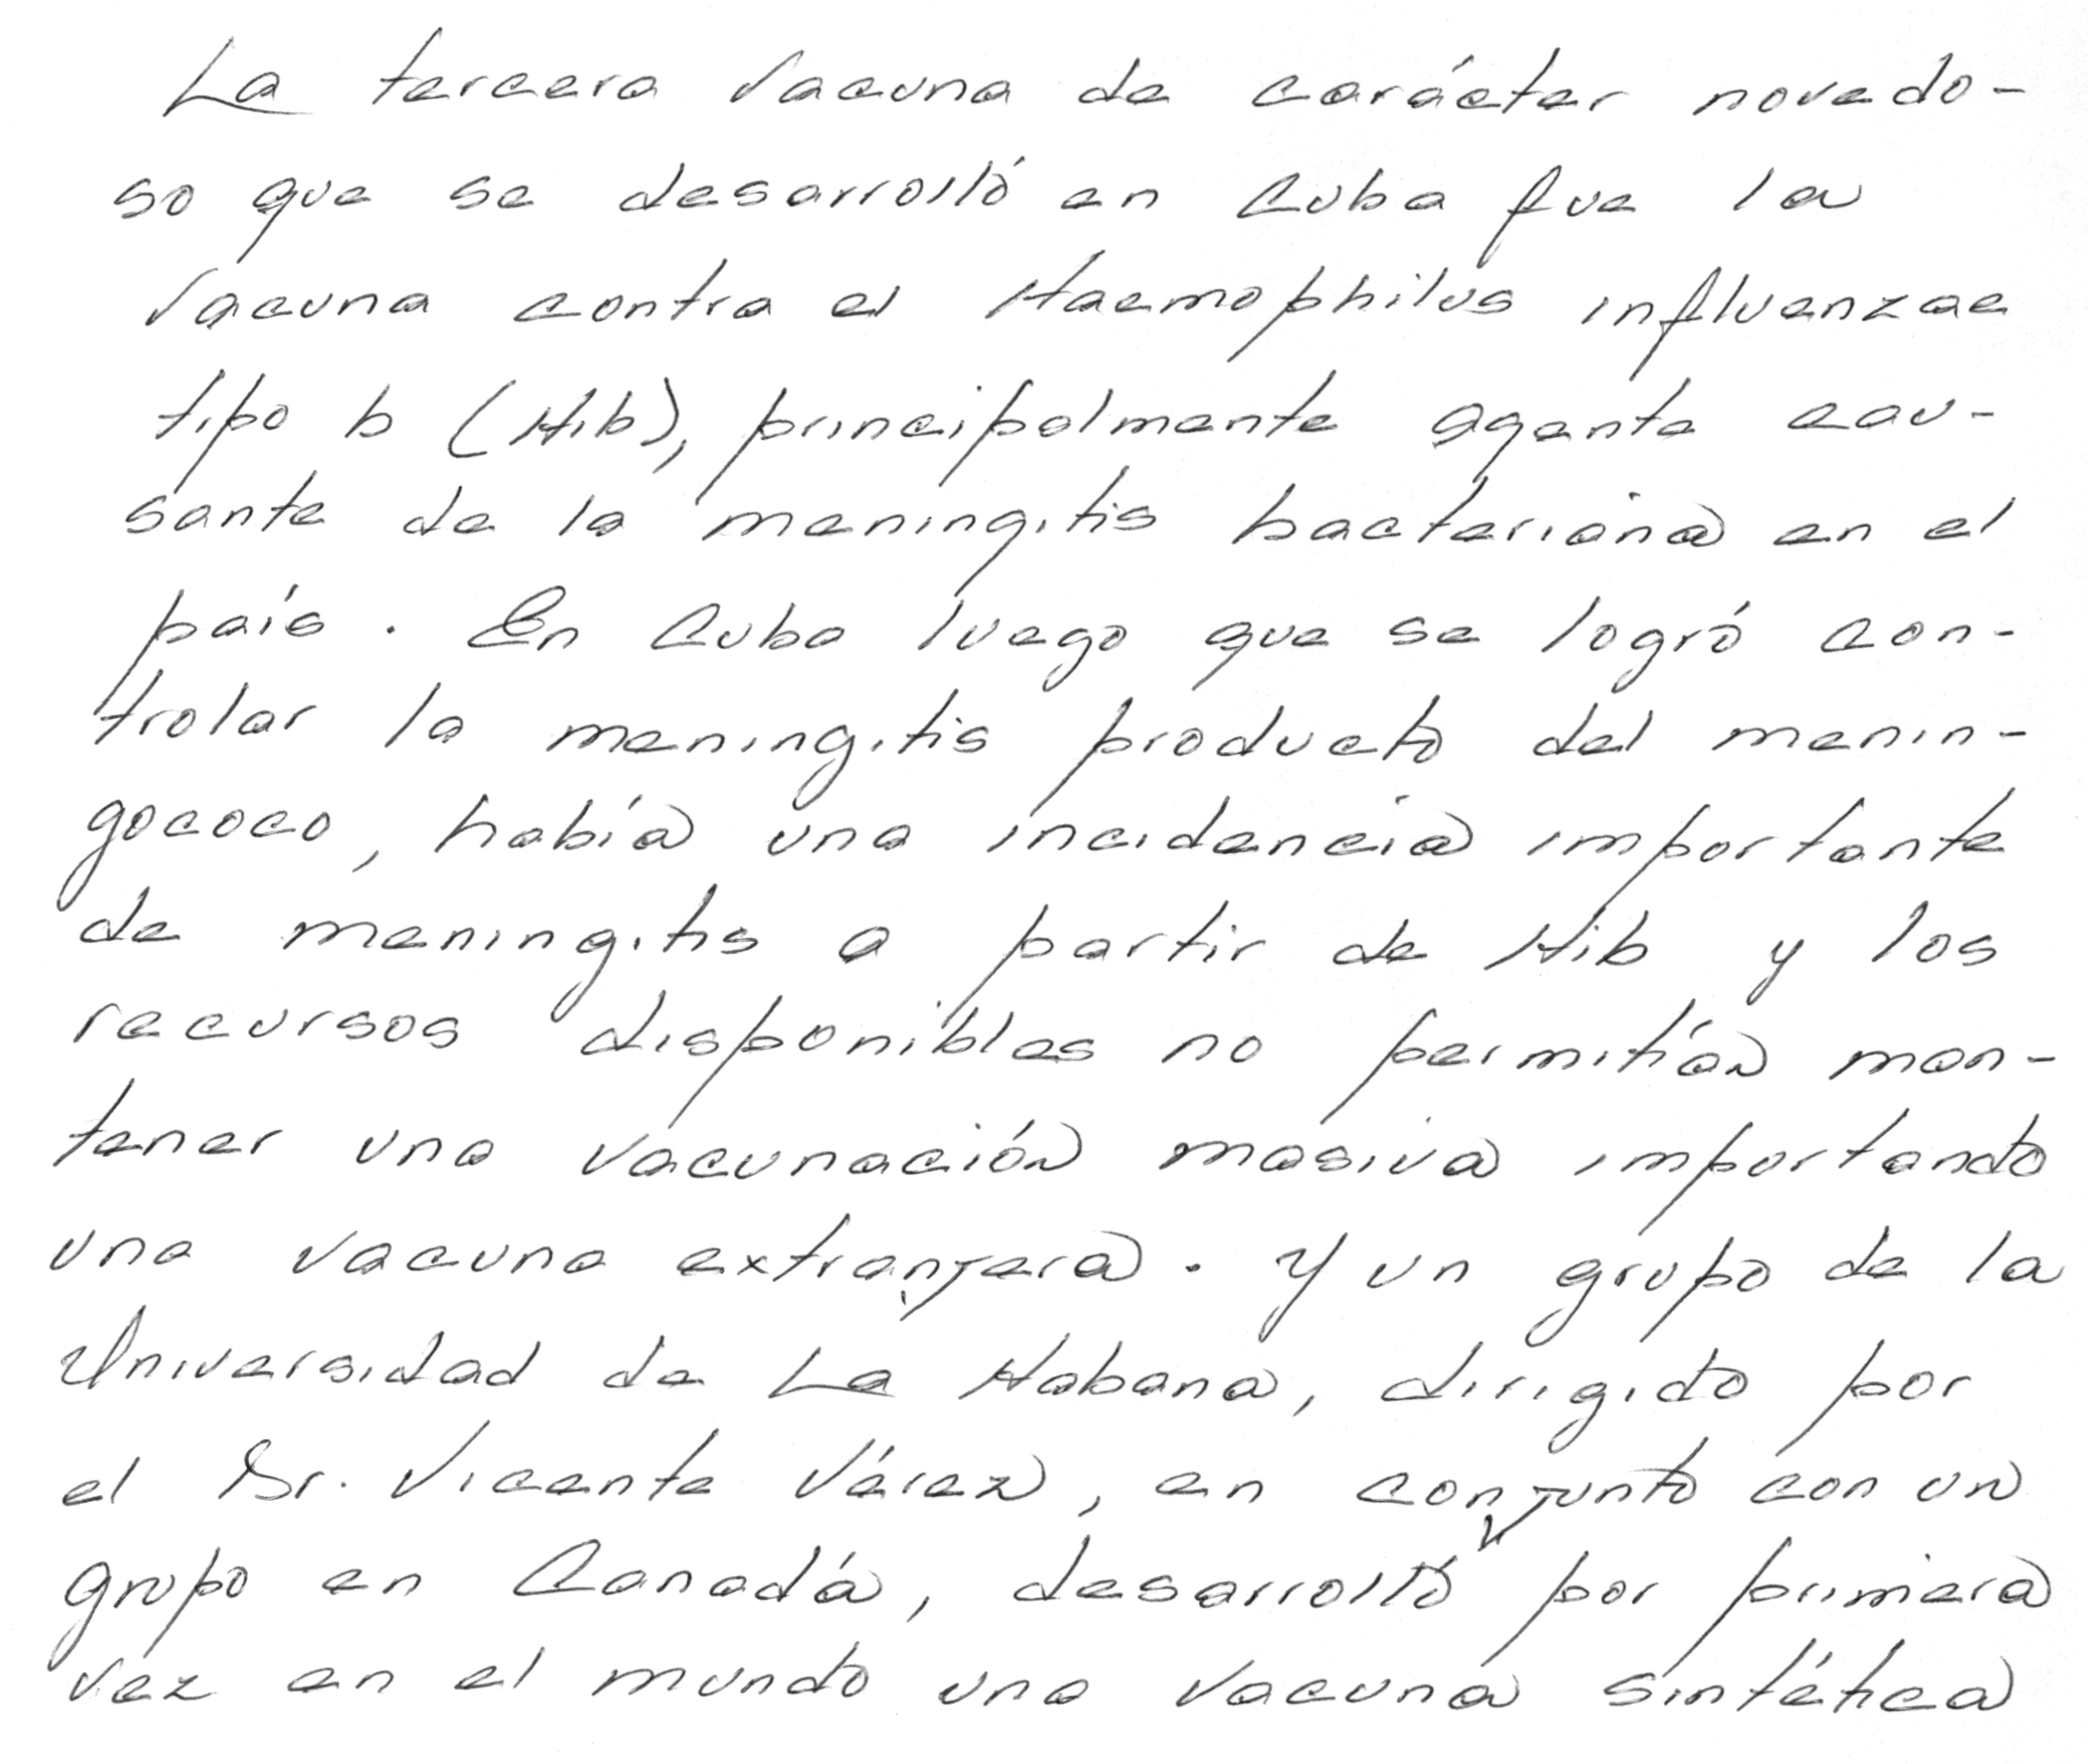 La tercera vacuna de carácter novedo-
so que se desarrolló en Cuba fue la
vacuna contra el Haemophilus influenzae
tipo b (Hib), principalmente agente cau-
sante de la meningitis bacteriana en el
país. En Cuba luego que se logró con-
trolar la meningitis producto del menin-
gococo, había una incidencia importante
de meningitis a partir de Hib y los
recursos disponibles no permitían man-
tener una vacunación masiva importando
una vacuna extranjera. Y un grupo de la
Universidad de La Habana, dirigido por
el Dr. Vicente Vérez, en conjunto con un
grupo en Canadá, desarrolló por primera
vez en el mundo una vacuna sintética